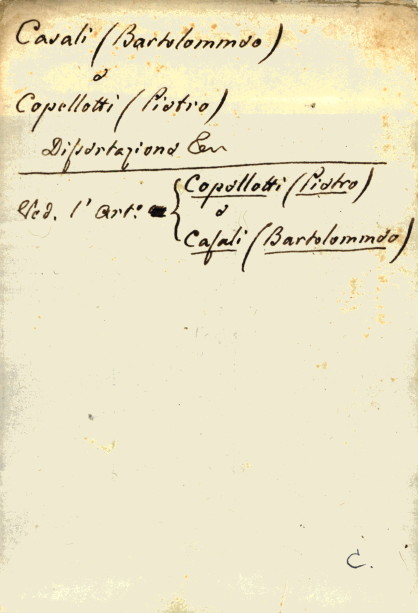 Casali (Bartolommeo)
e
Copellotti (Pietro)
Dissertazione &c
Ved. l' Art.º { Copellotti (Pietro)
e
Casali (Bartolommeo)
C.